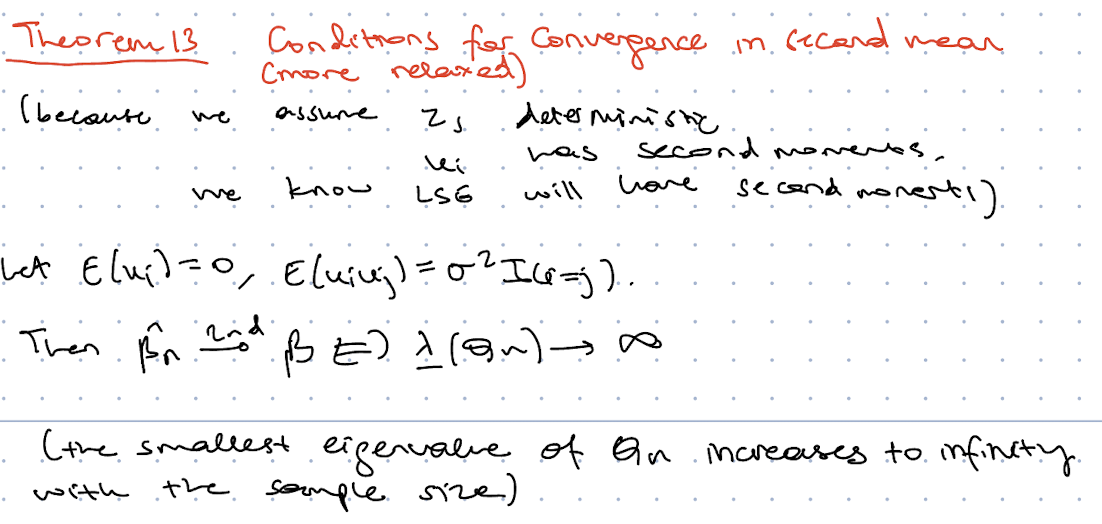 Theorem 13 Conditions for convergence in second mean
(more relaxed)
(because we assume zs deterministic
ui has second moments,
we know LSE will have second moments)
Let E(ui)=0, E(uiuj) = σ² I(i=j).
Then β̂n →2nd β ⇔ λ(Qn) → ∞
(the smallest eigenvalue of Qn increases to infinity
with the sample size)